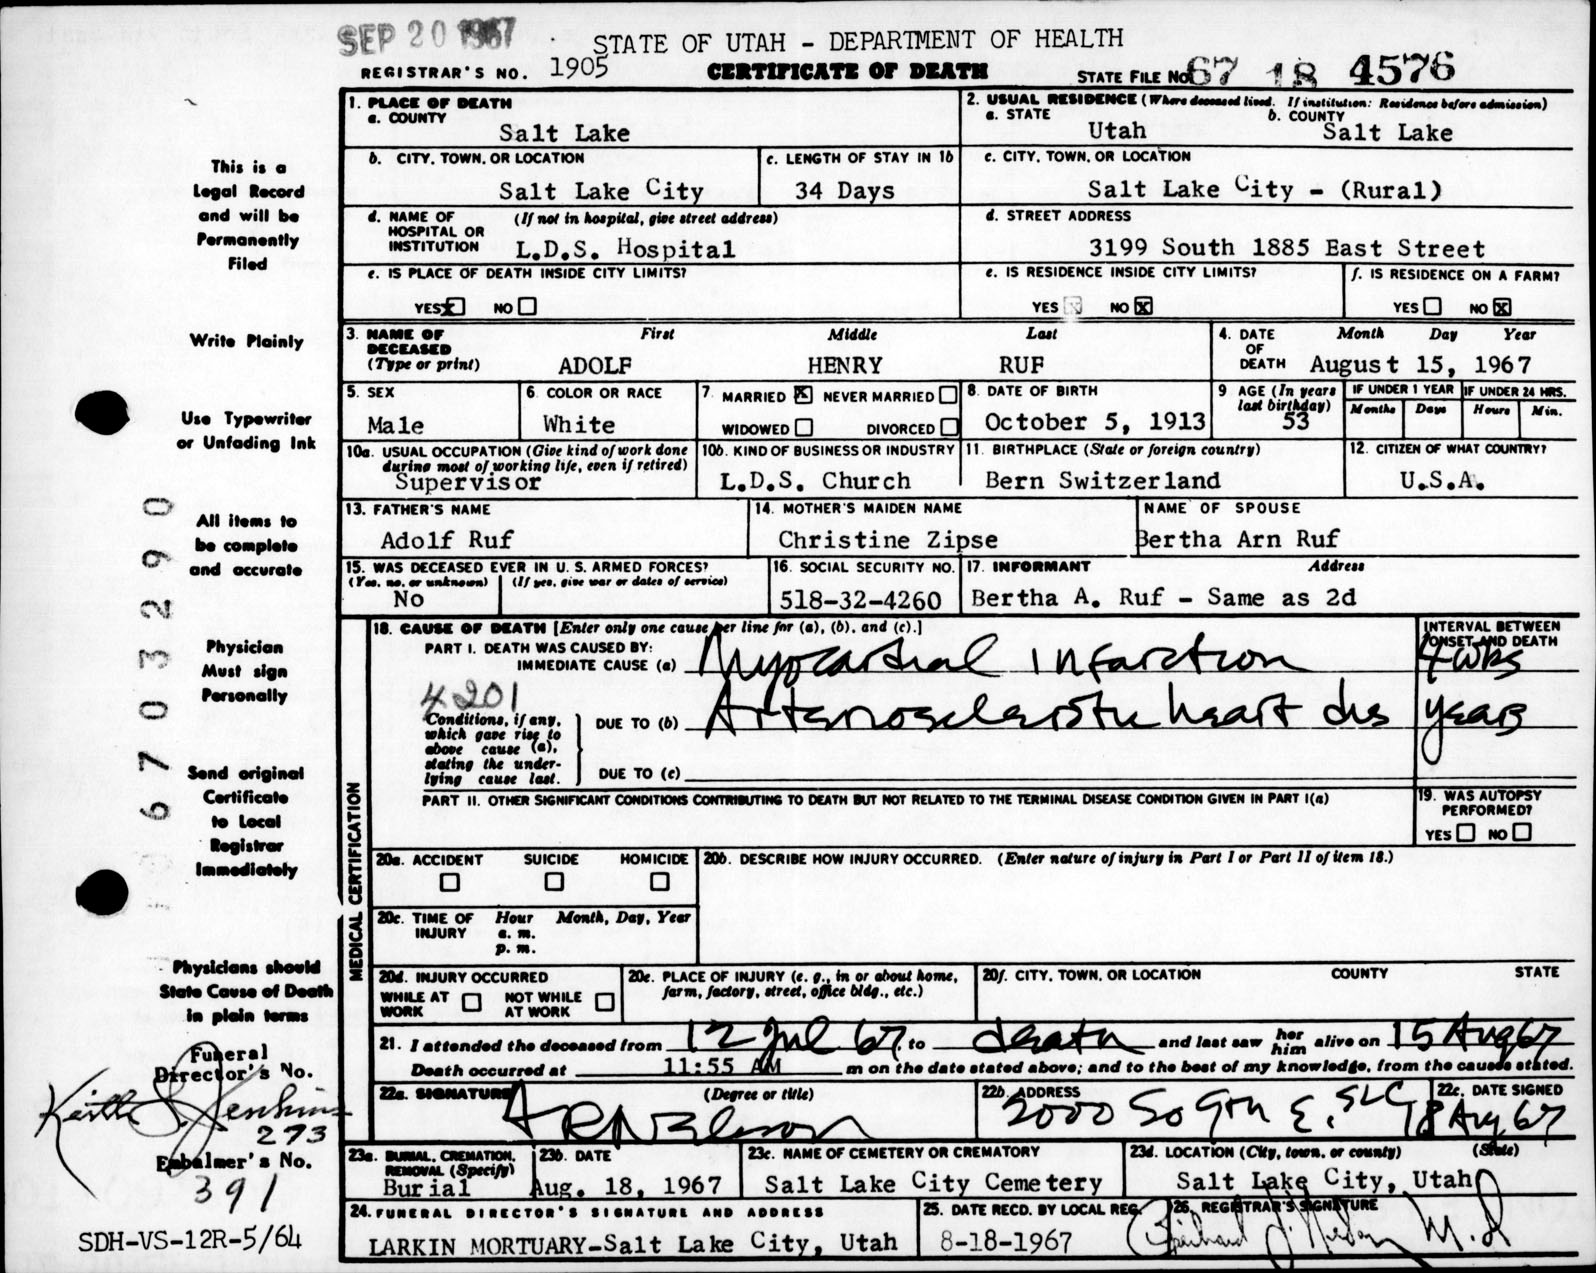 SEP 20 1967
STATE OF UTAH - DEPARTMENT OF HEALTH
REGISTRAR'S NO. 1905
CERTIFICATE OF DEATH
STATE FILE No 67 18 4576
This is a
Legal Record
and will be
Permanently
Filed
Write Plainly
Use Typewriter
or Unfading Ink
All items to
be complete
and accurate
Physician
Must sign
Personally
Send original
Certificate
to Local
Registrar
Immediately
Physicians should
State Cause of Death
in plain terms
Funeral
Director's No.
Keith S. Jenkins
273
Embalmer's No.
391
SDH-VS-12R-5/64
6703290
1. PLACE OF DEATH
a. COUNTY
Salt Lake
2. USUAL RESIDENCE (Where deceased lived. If institution: Residence before admission)
a. STATE b. COUNTY
Utah Salt Lake
b. CITY, TOWN, OR LOCATION
Salt Lake City
c. LENGTH OF STAY IN 1b
34 Days
c. CITY, TOWN, OR LOCATION
Salt Lake City - (Rural)
d. NAME OF (If not in hospital, give street address)
HOSPITAL OR
INSTITUTION L.D.S. Hospital
d. STREET ADDRESS
3199 South 1885 East Street
e. IS PLACE OF DEATH INSIDE CITY LIMITS?
YES X NO
e. IS RESIDENCE INSIDE CITY LIMITS?
YES X NO X
f. IS RESIDENCE ON A FARM?
YES NO X
3. NAME OF First Middle Last
DECEASED
(Type or print) ADOLF HENRY RUF
4. DATE Month Day Year
OF
DEATH August 15, 1967
5. SEX
Male
6. COLOR OR RACE
White
7. MARRIED X NEVER MARRIED
WIDOWED DIVORCED
8. DATE OF BIRTH
October 5, 1913
9 AGE (In years
last birthday)
53
IF UNDER 1 YEAR
Months Days
IF UNDER 24 HRS.
Hours Min.
10a. USUAL OCCUPATION (Give kind of work done
during most of working life, even if retired)
Supervisor
10b. KIND OF BUSINESS OR INDUSTRY
L.D.S. Church
11. BIRTHPLACE (State or foreign country)
Bern Switzerland
12. CITIZEN OF WHAT COUNTRY?
U.S.A.
13. FATHER'S NAME
Adolf Ruf
14. MOTHER'S MAIDEN NAME
Christine Zipse
NAME OF SPOUSE
Bertha Arn Ruf
15. WAS DECEASED EVER IN U.S. ARMED FORCES?
(Yes, no, or unknown) (If yes, give war or dates of service)
No
16. SOCIAL SECURITY NO.
518-32-4260
17. INFORMANT Address
Bertha A. Ruf - Same as 2d
MEDICAL CERTIFICATION
18. CAUSE OF DEATH [Enter only one cause per line for (a), (b), and (c).]
PART I. DEATH WAS CAUSED BY:
IMMEDIATE CAUSE (a) Myocardial infarction
INTERVAL BETWEEN
ONSET AND DEATH
4 wks
4201
Conditions, if any,
which gave rise to
above cause (a),
stating the under-
lying cause last.
DUE TO (b) Arteriosclerotic heart dis years
DUE TO (c)
PART II. OTHER SIGNIFICANT CONDITIONS CONTRIBUTING TO DEATH BUT NOT RELATED TO THE TERMINAL DISEASE CONDITION GIVEN IN PART I(a)
19. WAS AUTOPSY
PERFORMED?
YES NO
20a. ACCIDENT SUICIDE HOMICIDE
20b. DESCRIBE HOW INJURY OCCURRED. (Enter nature of injury in Part I or Part II of item 18.)
20c. TIME OF Hour Month, Day, Year
INJURY a. m.
p. m.
20d. INJURY OCCURRED
WHILE AT WORK NOT WHILE AT WORK
20e. PLACE OF INJURY (e. g., in or about home,
farm, factory, street, office bldg., etc.)
20f. CITY, TOWN, OR LOCATION COUNTY STATE
21. I attended the deceased from 12 Jul 67, to death and last saw her him alive on 15 Aug 67
Death occurred at 11:55 AM m on the date stated above; and to the best of my knowledge, from the causes stated.
22a. SIGNATURE (Degree or title)
22b. ADDRESS
2000 So 9th E. SLC
22c. DATE SIGNED
18 Aug 67
23a. BURIAL, CREMATION,
REMOVAL (Specify)
Burial
23b. DATE
Aug. 18, 1967
23c. NAME OF CEMETERY OR CREMATORY
Salt Lake City Cemetery
23d. LOCATION (City, town, or county) (State)
Salt Lake City, Utah
24. FUNERAL DIRECTOR'S SIGNATURE AND ADDRESS
LARKIN MORTUARY-Salt Lake City, Utah
25. DATE RECD. BY LOCAL REG.
8-18-1967
26. REGISTRAR'S SIGNATURE
M.D.